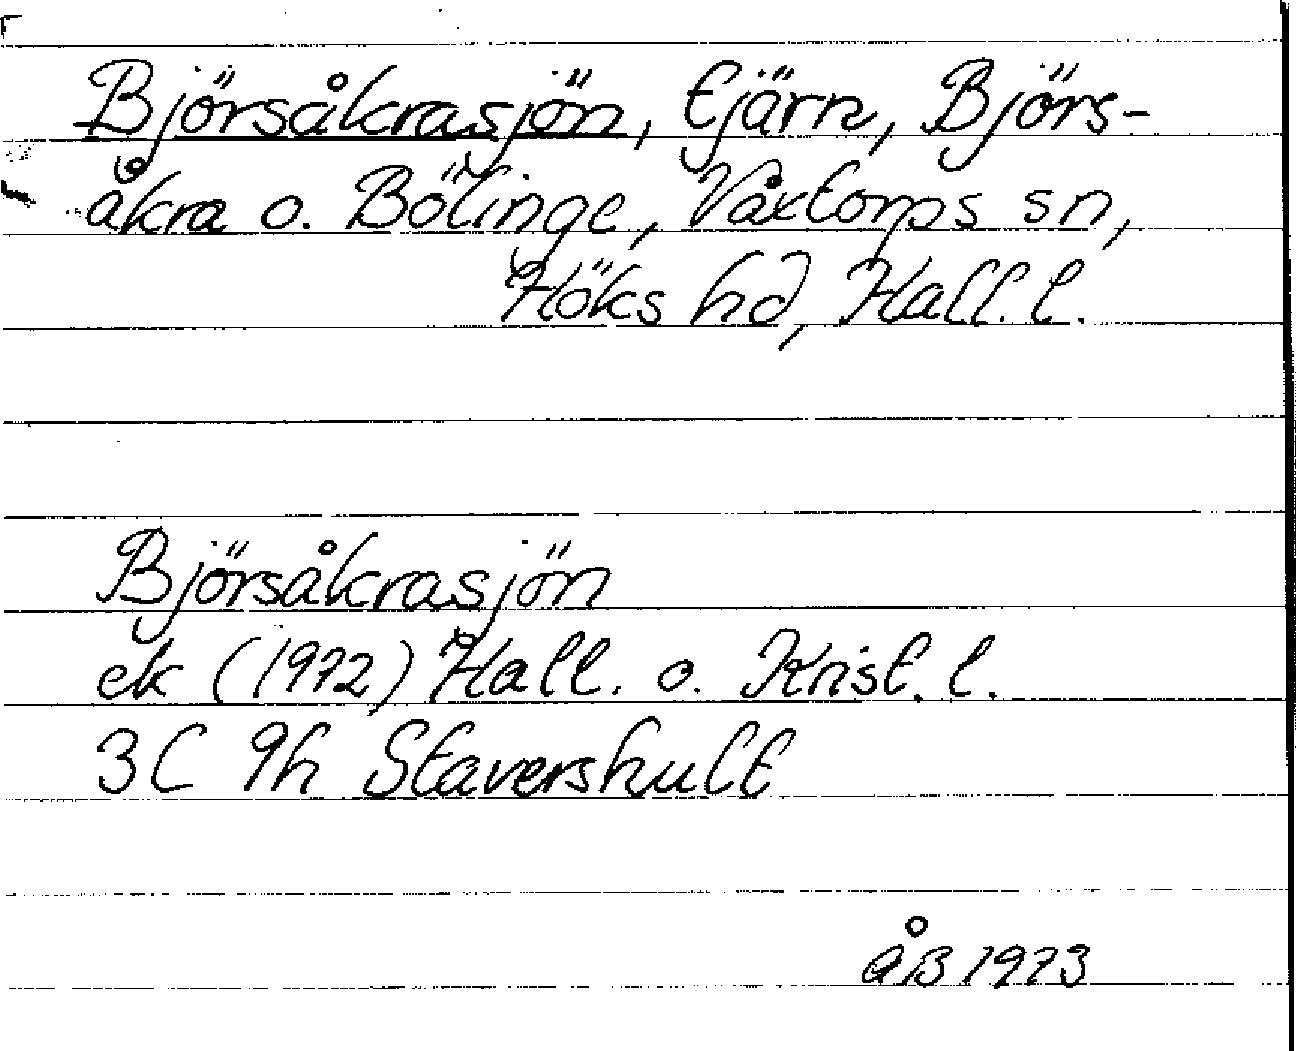 Björsåkrasjön, tjärn, Björs-
åkra o. Bölinge, Våxtorps sn,
Höks hd, Hall. l.
Björsåkrasjön
ek (1972) Hall. o. Krist. l.
3C 9h Stavershult
ÅB 1973